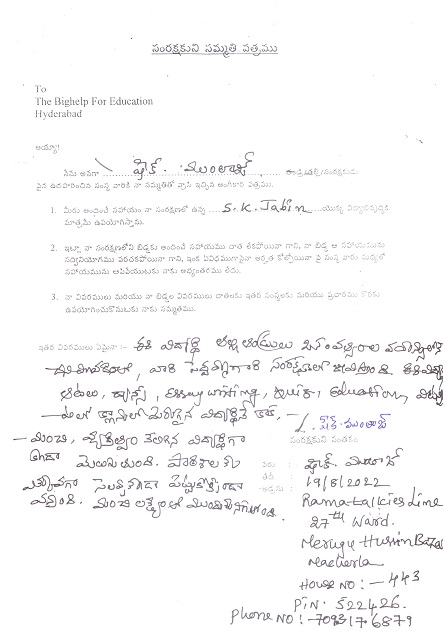 సంరక్షకుని సమ్మతి పత్రము
To
The Bighelp For Education
Hyderabad
అయ్యా!
నేను అనగా షేక్. ముంతాజ్ తండ్రి/తల్లి/సంరక్షకుడు
పైన ఉదహరించిన సంస్థ వారికి నా సమ్మతితో వ్రాసి ఇచ్చిన అంగీకార పత్రము.
1. మీరు అందించే సహాయం నా సంరక్షణలో ఉన్న S.K. Jabin యొక్క విద్యాభివృద్ధికి
మాత్రమే ఉపయోగిస్తాను.
2. ఇట్లా నా సంరక్షణలోని బిడ్డకు అందించే సహాయము దాత లేకపోయినా గాని, నా బిడ్డ ఆ సహాయమును
సద్వినియోగము పరచకపోయినా గాని, ఇంక ఏవిధముగానైనా అర్హత కోల్పోయినా పై సంస్థ వారు మధ్యలో
సహాయమును ఆపివేయుటకు నాకు అభ్యంతరము లేదు.
3. నా వివరములు మరియు నా బిడ్డల వివరములు దాతలకు ఇతర సంస్థలకు మరియు ప్రచారము కొరకు
ఉపయోగించుకొనుటకు నాకు సమ్మతము.
ఇతర వివరములు ఏమైనా :- ఈ విద్యార్థి తల్లి తండ్రులు
వారి పెద్దమ్మగారి సంరక్షణలో
ఆటలు, డ్యాన్స్, Essay writing, quiz, Education
క్లాస్ లో మెరుగైన విద్యార్థినే కాక,
షేక్ ముంతాజ్
- మంచి, వ్యక్తిత్వం కలిగిన విద్యార్థిగా
సంరక్షకుని సంతకం
కూడా మెలుగుతుంది. పాఠశాలకు
పేరు : షేక్. ముంతాజ్
ఎక్కువగా సెలవులు కూడా పెట్టుకోకుండా
తేదీ : 19/8/2022
వస్తుంది. మంచి లక్ష్యంతో ముందుకు సాగుతుంది.
అడ్రసు : Rama talkies Line
27th Ward.
Merugu Hussin Bazar
Macherla
House NO: - 443
Pin: 522426.
Phone NO: - 7093176879